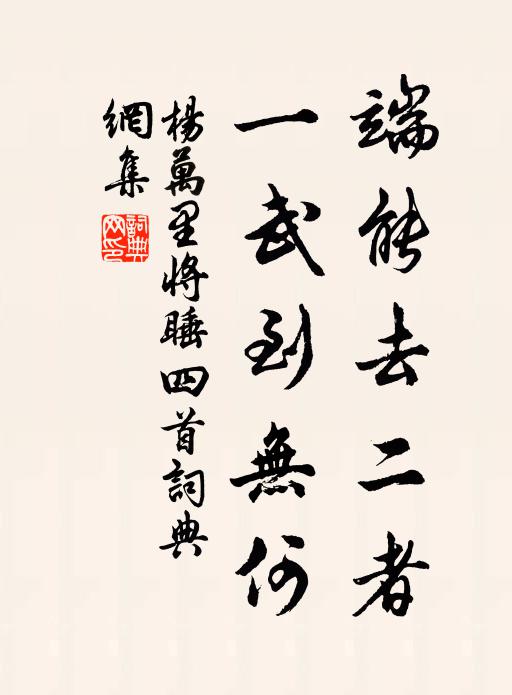 端能去二者
一武到無何
楊萬里將睡四首詞典
網集
詞典網印